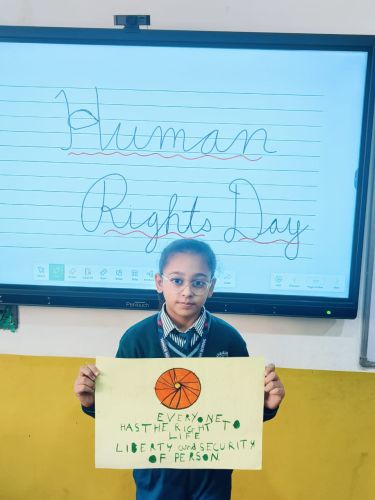 Human
Rights Day
Pentouch
EVERYONE
HAS THE RIGHT TO
LIFE
LIBERTY and SECURITY
OF PERSON.